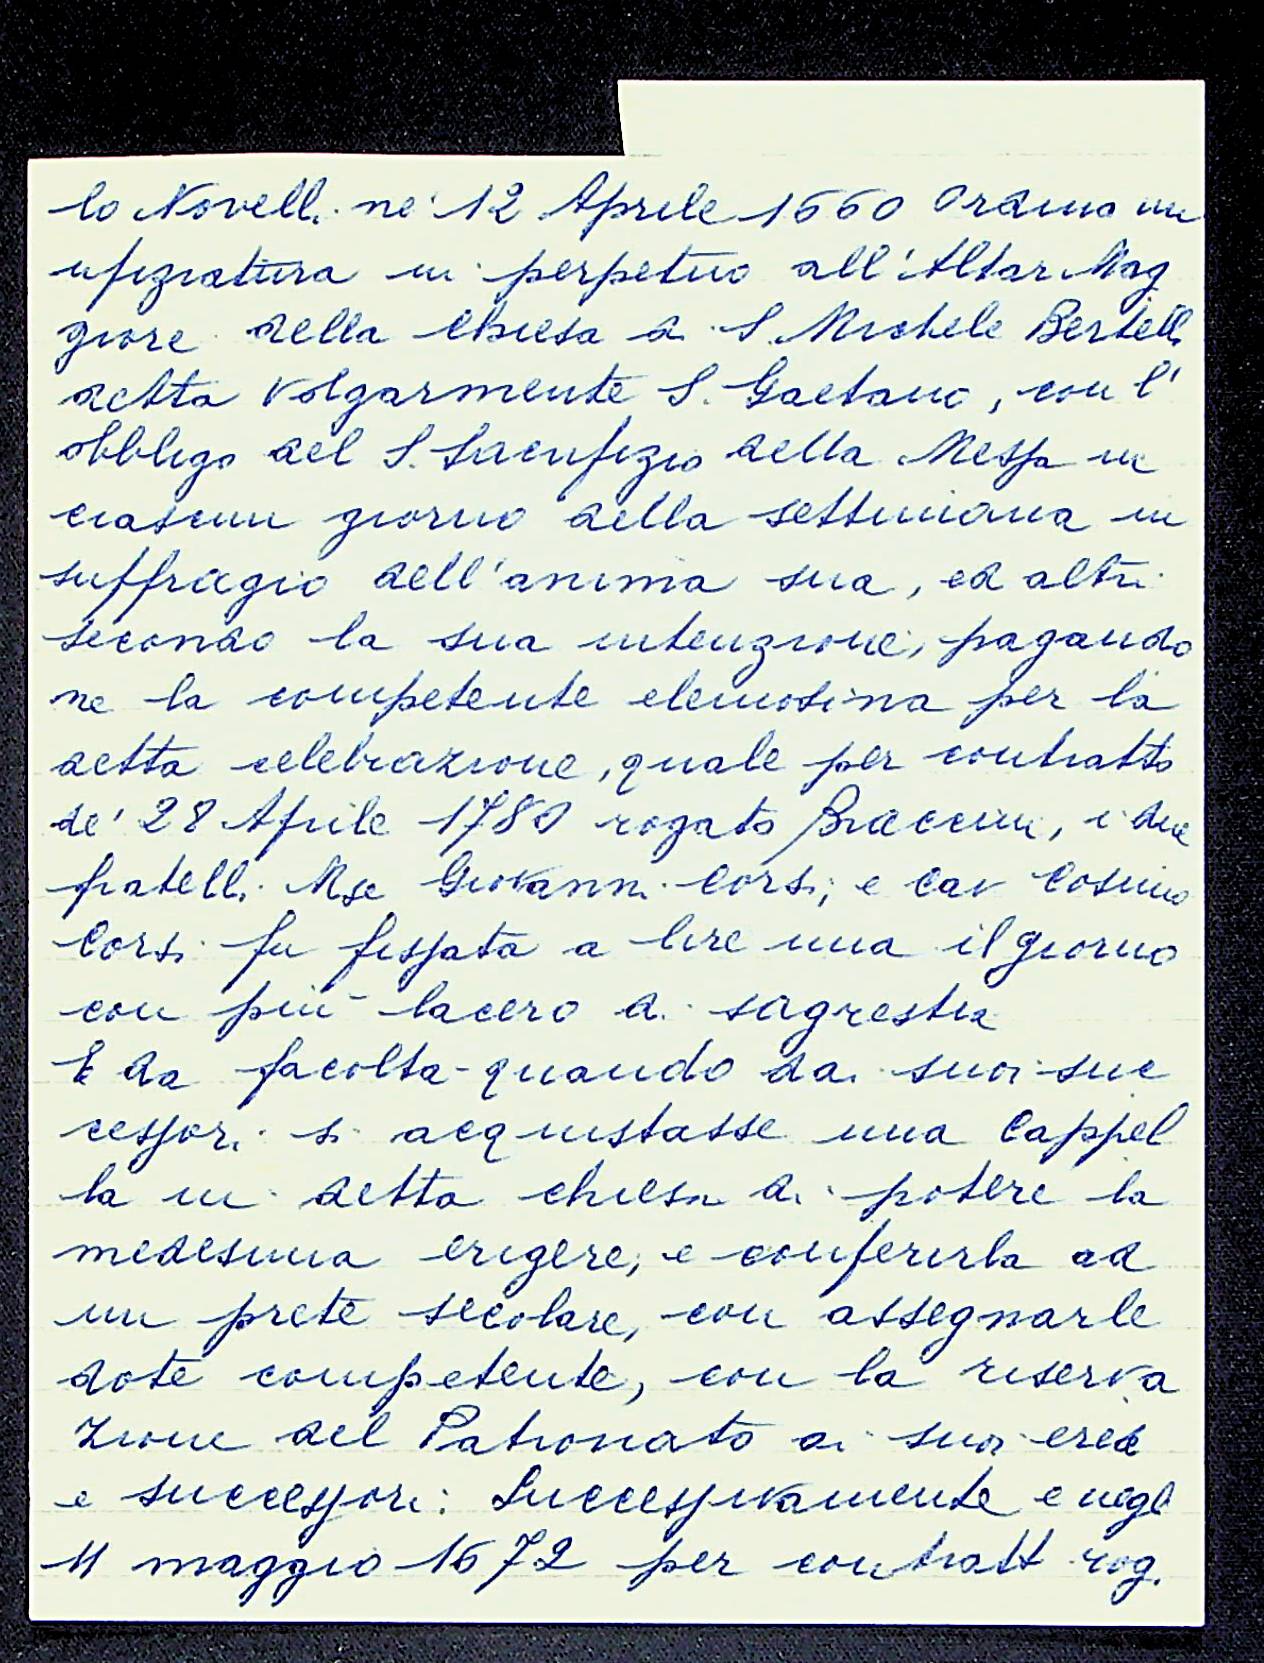 lo Novelli ne' 12 Aprile 1660 Ordino un
ufiziatura in perpetuo all'Altar Mag
giore della Chiesa di S. Michele Bertelli
detta volgarmente S. Gaetano, con l'
obbligo del S. Sacrifizio della Messa in
ciascun giorno della settimana in
suffragio dell'anima sua, ed altri
secondo la sua intenzione, pagando
ne la competente elemosina per la
detta celebrazione, quale per contratto
de' 28 Aprile 1780 rogato Braccini, i due
fratelli Mse Giovanni Corsi, e Cav Cosimo
Corsi fu fissata a lire una il giorno
con più lacero di sagrestia
E da facolta quando dai suoi suc
cessori si acquistasse una Cappel
la in detta chiesa di potere la
medesima erigere, e conferirla ad
un prete secolare, con assegnarle
dote competente, con la riserva
zione del Patronato ai suoi eredi
e successori: Successivamente e negl
11 maggio 1672 per contratt rog.